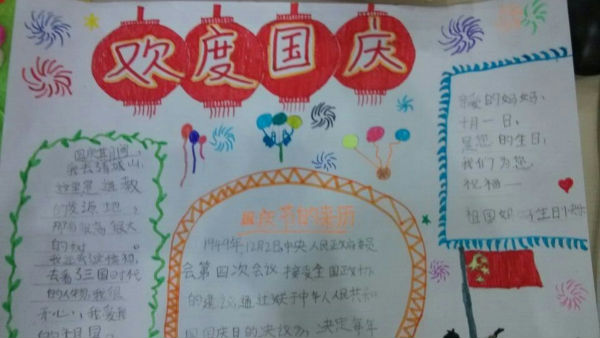 欢度国庆
国庆期间，
我去青城山，
这里是道教
的发源地，
那有很大
的树。
去看了三国时代
的人物，我很
开心，我爱我
的祖国。
国庆节的来历
1949年12月2日中央人民政府委员
会第四次会议接受全国政协
的建议，通过了关于中华人民共和
国国庆日的决议》，决定每年
亲爱的妈妈，
十月一日，
是您的生日，
我们为您
祝福——
祖国妈妈生日快乐